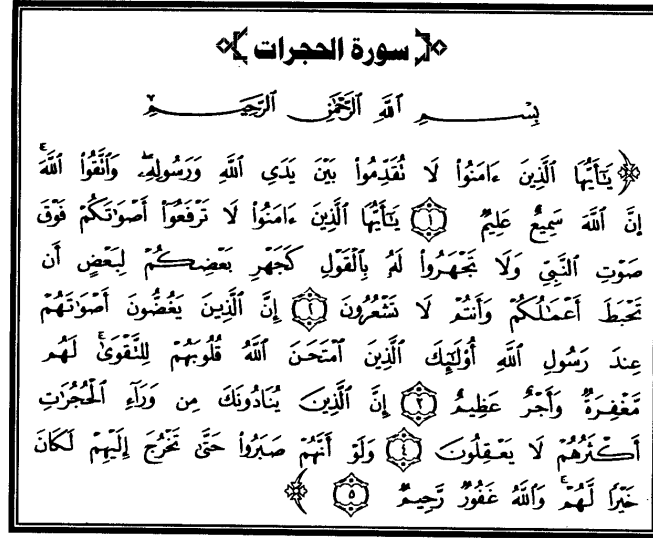 سورة الحجرات
بِسْمِ ٱللَّهِ ٱلرَّحْمَٰنِ ٱلرَّحِيمِ
﴿يَٰٓأَيُّهَا ٱلَّذِينَ ءَامَنُوا۟ لَا تُقَدِّمُوا۟ بَيْنَ يَدَىِ ٱللَّهِ وَرَسُولِهِۦ ۖ وَٱتَّقُوا۟ ٱللَّهَ ۚ
إِنَّ ٱللَّهَ سَمِيعٌ عَلِيمٌ ١ يَٰٓأَيُّهَا ٱلَّذِينَ ءَامَنُوا۟ لَا تَرْفَعُوٓا۟ أَصْوَٰتَكُمْ فَوْقَ
صَوْتِ ٱلنَّبِىِّ وَلَا تَجْهَرُوا۟ لَهُۥ بِٱلْقَوْلِ كَجَهْرِ بَعْضِكُمْ لِبَعْضٍ أَن
تَحْبَطَ أَعْمَٰلُكُمْ وَأَنتُمْ لَا تَشْعُرُونَ ٢ إِنَّ ٱلَّذِينَ يَغُضُّونَ أَصْوَٰتَهُمْ
عِندَ رَسُولِ ٱللَّهِ أُو۟لَٰٓئِكَ ٱلَّذِينَ ٱمْتَحَنَ ٱللَّهُ قُلُوبَهُمْ لِلتَّقْوَىٰ ۚ لَهُم
مَّغْفِرَةٌ وَأَجْرٌ عَظِيمٌ ٣ إِنَّ ٱلَّذِينَ يُنَادُونَكَ مِن وَرَآءِ ٱلْحُجُرَٰتِ
أَكْثَرُهُمْ لَا يَعْقِلُونَ ٤ وَلَوْ أَنَّهُمْ صَبَرُوا۟ حَتَّىٰ تَخْرُجَ إِلَيْهِمْ لَكَانَ
خَيْرًا لَّهُمْ ۚ وَٱللَّهُ غَفُورٌ رَّحِيمٌ ٥ ﴾